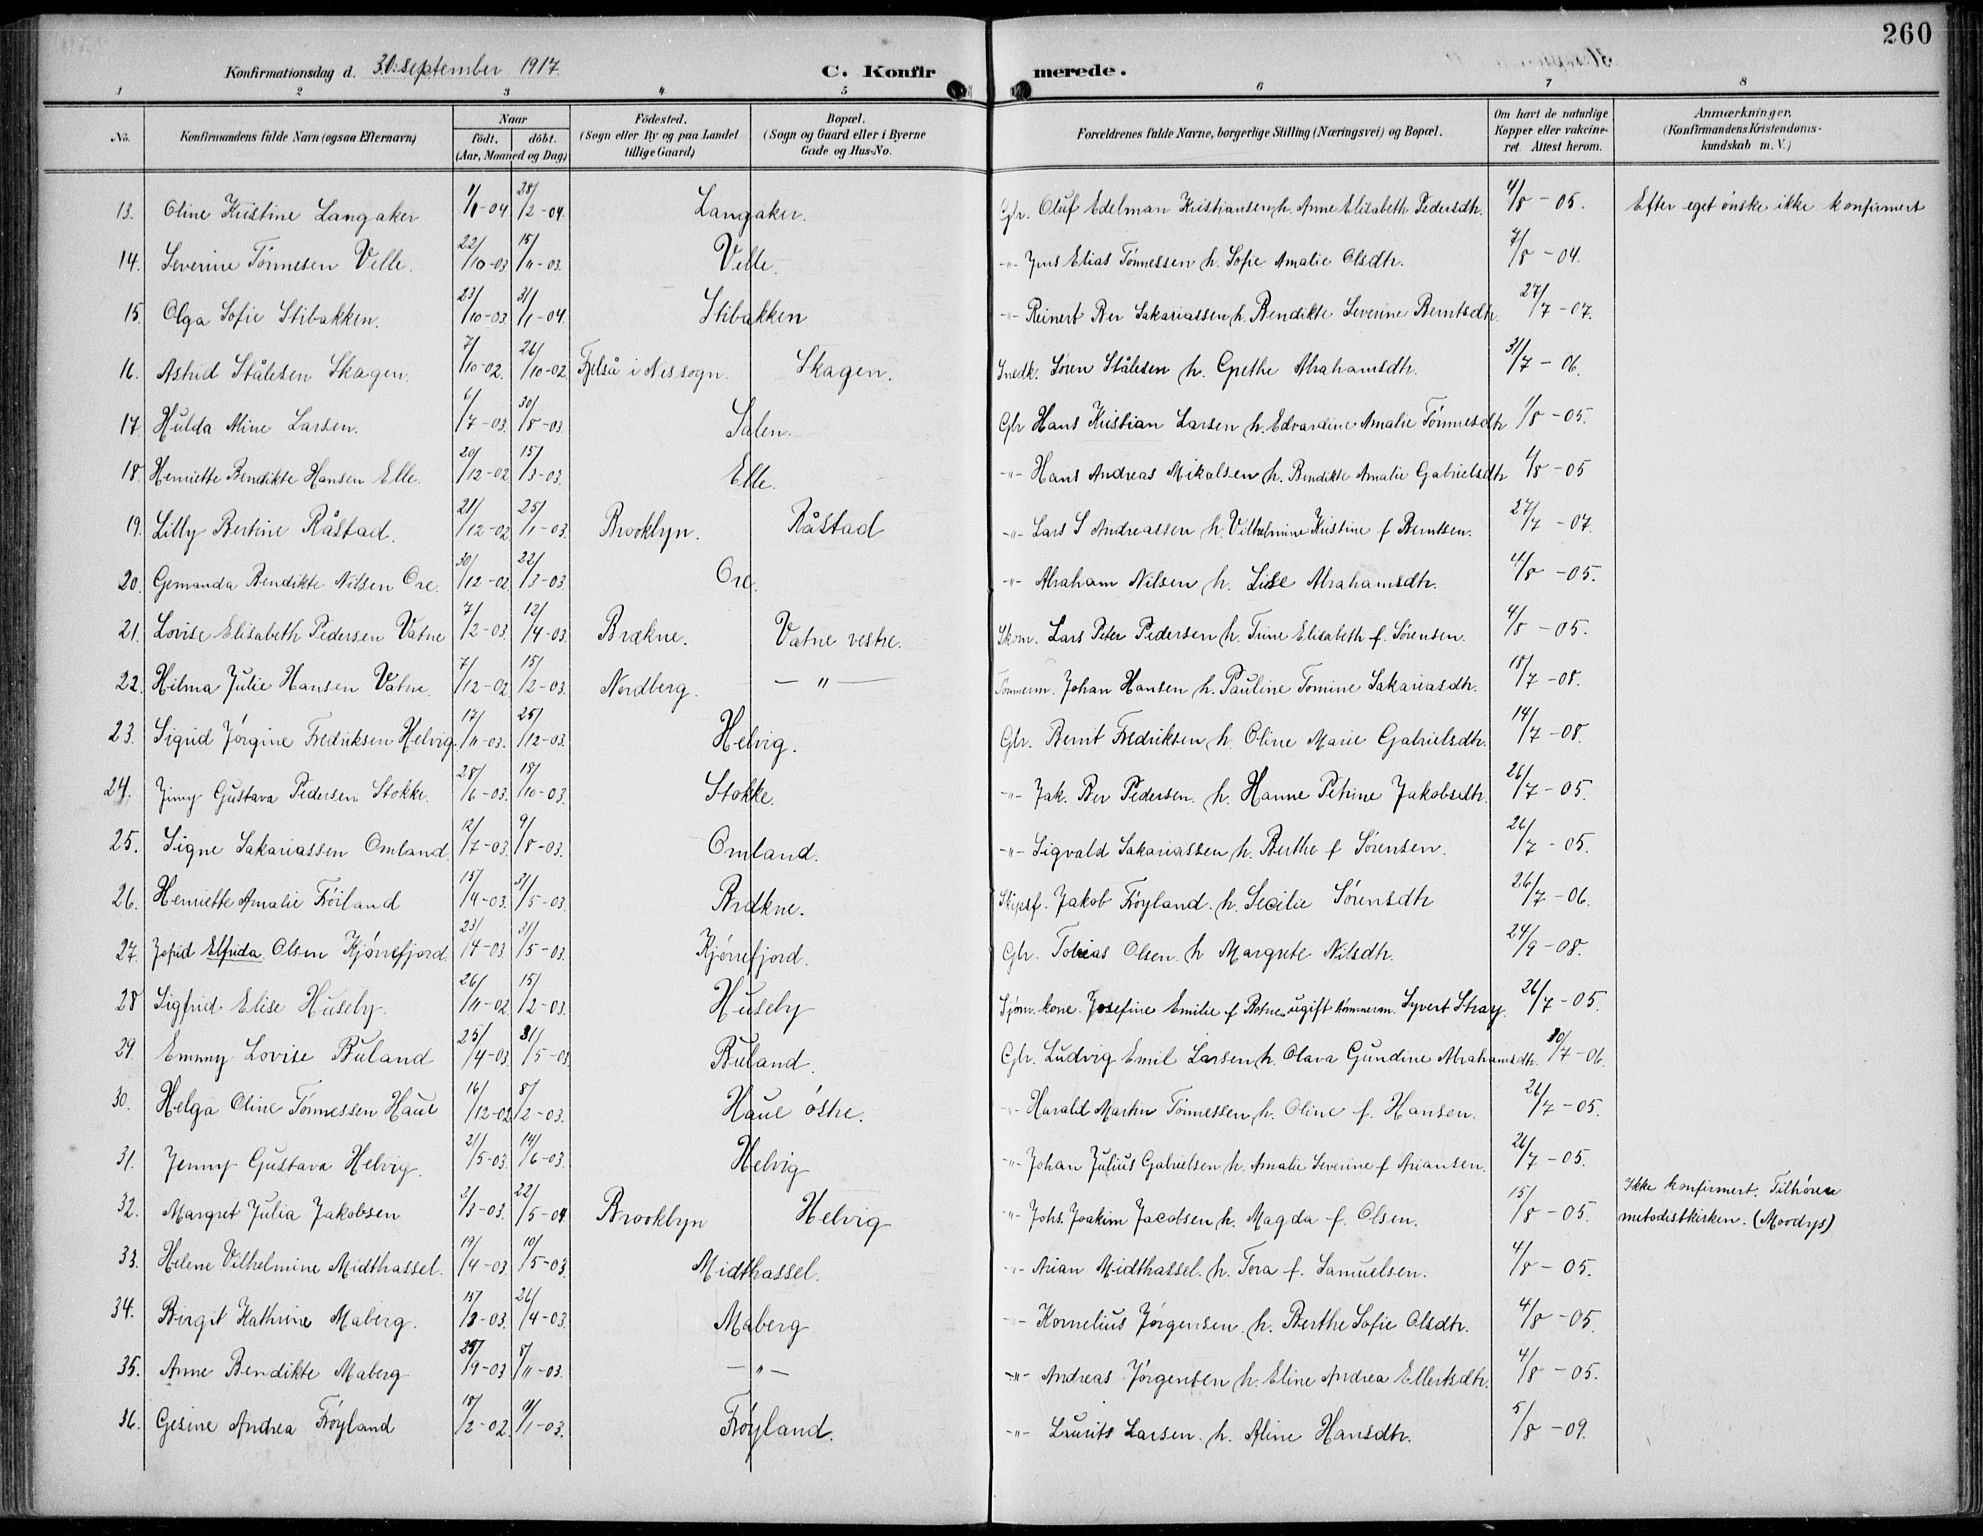 260
Konfirmationsdag d. 30. september 1917.
C. Konfirmerede.
1 2 3 4 5 6 7 8
No.
Konfirmandens fulde Navn (ogsaa Efternavn)
Naar
födt. döbt.
(Aar, Maaned og Dag)
Födested.
(Sogn eller By og paa Landet
tillige Gaard)
Bopæl.
(Sogn og Gaard eller i Byerne
Gade og Hus-No.
Forældrenes fulde Navne, borgerlige Stilling (Næringsvei) og Bopæl.
Om havt de naturlige
Kopper eller vakcine-
ret. Attest herom.
Anmærkninger.
(Konfirmandens Kristendoms-
kundskab m. V.)
13. Oline Kristine Langaker 1/1-04 28/2-04. Langaker. Gbr. Oluf Edelman Kristiansen h. Anne Elisabeth Pedersdtr. 4/8-05. Efter eget ønske ikke konfirmert
14. Severine Tönnesen Velle. 22/10-03 15/11-03. Velle. -"- Jens Elias Tönnessen h. Sofie Amalie Olsdtr. 7/8-04.
15. Olga Sofie Stibakken. 23/10-03 31/1-04. Stibakken -"- Reinert Ber Sakariassen h. Bendikte Severine Berntsdtr. 27/7-07.
16. Astrid Stålesen Skagen. 7/10-02. 26/10-02. Fjelså i Nes sogn. Skagen. Snedk. Sören Stålesen h. Grethe Abrahamsdtr. 31/7-06.
17. Hulda Aline Larsen. 6/7-03. 30/8-03. Salen. Gbr Hans Kristian Larsen h. Edvardine Amalie Tönnesdtr 1/8-05.
18. Henriette Bendikte Hansen Elle. 20/12-02 15/3-03. Elle. -"- Hans Andreas Mikalsen h. Bendikte Amalie Gabrielsdtr 4/8-05
19. Lilly Bertine Råstad. 21/12-02 25/1-03. Brooklyn. Råstad -"- Lars S Andreassen h. Vilhelmine Kristine f Berntsen. 27/7-07.
20. Gemanda Bendikte Nilsen Ore. 30/12-02. 22/3-03 Ore. -"- Abraham Nilsen h. Lise Abrahamsdtr. 4/8-05.
21. Lovise Elisabeth Pedersen Vatne 7/2-03. 12/4-03. Brækne. Vatne vestre. Skom. Lars Peter Pedersen h. Trine Elisabeth f. Sörensen. 4/8-05.
22. Hilma Julie Hansen Vatne. 7/12-02 15/2-03. Nordberg. — " — Tömmerm. Johan Hansen h. Pauline Tomine Sakariasdtr. 18/7-08.
23. Sigrid Jörgine Fredriksen Helvig. 17/11-03. 25/12-03. Helvig. Gbr. Bernt Fredriksen h. Oline Marie Gabrielsdtr. 14/7-08.
24. Jinny Gustava Pedersen Stokke. 28/6-03. 18/10-03. Stokke. -"- Jak. Ber Pedersen. h. Hanne Petrine Jakobsdtr. 26/7-05.
25. Signe Sakariassen Omland. 12/7-03. 9/8-03. Omland. -"- Sigvald Sakariassen h. Berthe f Sörensen. 26/7-05.
26. Henriette Amalie Fröiland 15/4-03. 31/5-03. Brækne. Skipsf. Jakob Fröyland. h. Secilie Sörensdtr 26/7-06.
27. Elfrida Olsen Kjörrefjord. 23/4-03. 31/5-03. Kjörrefjord. Gbr. Tobias Olsen. h Margrete Nilsdtr. 24/9-08.
28 Sigfrid Elise Huseby. 26/11-02 15/2-03. Huseby Sjöm. kone. Josefine Emilie f Botne ugift tömmerm. Syvert Stray. 26/7-05.
29. Emmy Lovise Buland 25/4-03. 31/5-03 Buland. Gbr. Ludvig Emil Larsen h. Olava Gundine Abrahamsdtr. 30/7-06.
30. Helga Oline Tönnessen Haue 16/12-02 8/2-03. Haue östre. -"- Harald Martin Tönnessen h. Oline f. Hansen. 26/7-05.
31. Jenny Gustava Helvig. 21/5-03. 14/6-03. Helvig -"- Johan Julius Gabrielsen h. Amalie Severine f Ariansen. 26/7-05.
32. Margret Julia Jakobsen 2/3-03. 22/5-04. Brooklyn Helvig -"- Johs. Joakim Jacobsen h. Magda f. Olsen. 15/8-05. Ikke konfirmert. Tilhörer
metodistkirken. (Moodys)
33. Helene Vilhelmine Midthassel. 19/4-03. 10/5-03. Midthassel. -"- Arian Midthassel. h. Tora f. Samuelsen. 4/8-05.
34. Birgit Kathrine Maberg. 15/3-03. 26/4-03. Maberg -"- Kornelius Jörgensen. h. Berthe Sofie Olsdtr. 4/8-05.
35. Anne Bendikte Maberg 25/9-03 8/11-03. — " — -"- Andreas Jörgensen h. Eline Andrea Ellertsdtr. 4/8-05.
36. Gesine Andrea Fröyland 18/2-02. 9/1-03. Fröyland. -"- Laurits Larsen. h. Aline Hansdtr. 5/8-09.